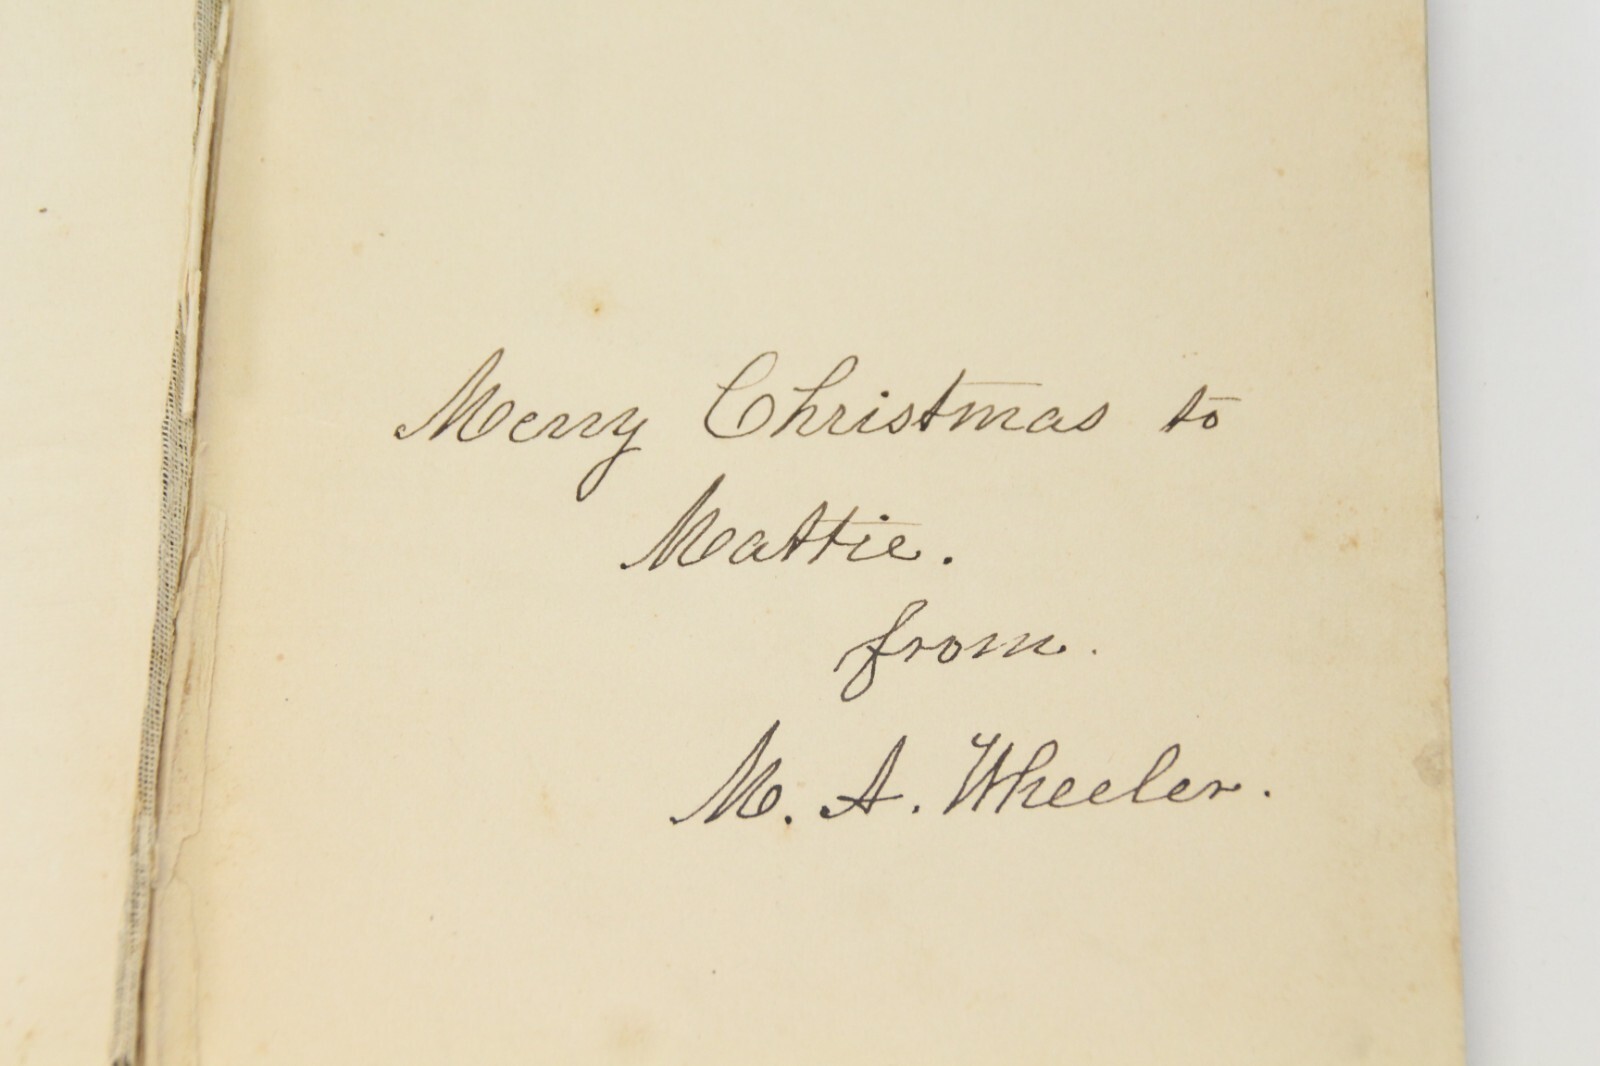 Merry Christmas to
Mattie.
from.
M. A. Wheeler.